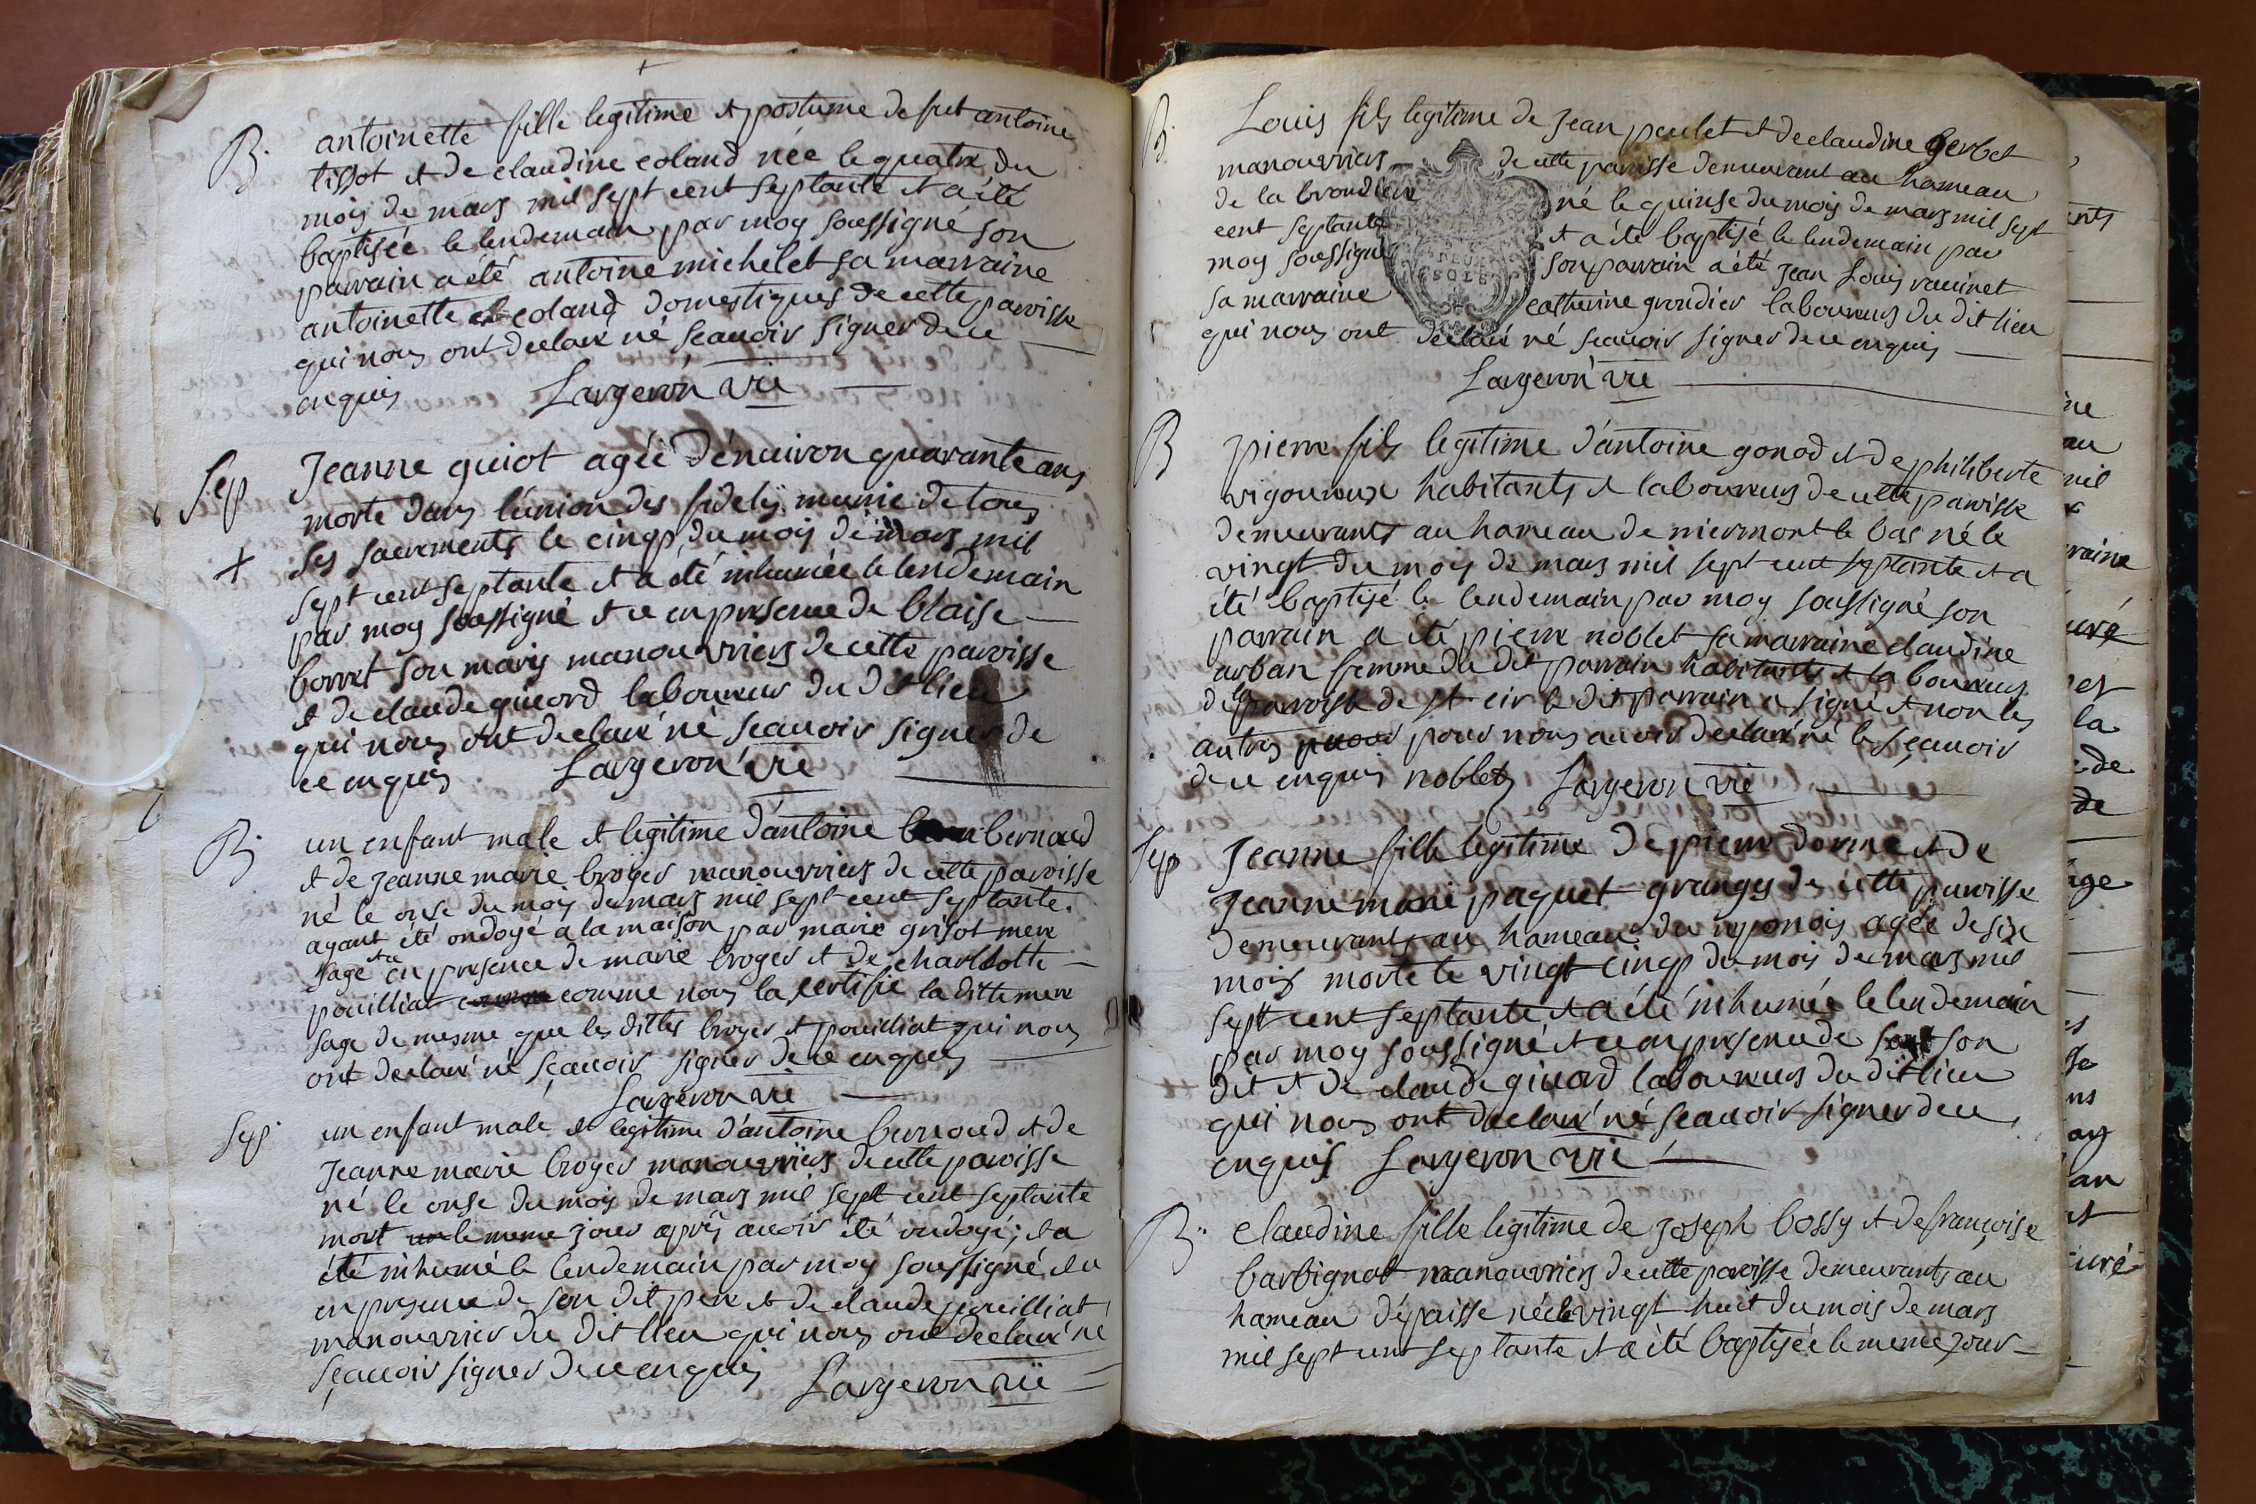 B. antoinette fille legitime et postume de fut antoine
tissot et de claudine coland née le quatre du
mois de mars mil sept cent septante et a été
baptisée le lendemain par moy soussigné son
parrain a été antoine michelet sa marraine
antoinette coland domestiques de cette paroisse
qui nous ont declaré né scavoir signer de ce
enquis Largeron vic
Sep Jeanne guiot agée d'énuiron quarante ans
morte dans l'union des fidels munie de tous
+ ses sacrements le cinq du mois de mars mil
sept cent septante et a été inhumée le lendemain
par moy soussigné et ce en presence de blaise
borret son maris manouvriers de cette paroisse
et de claude giuord laboureur du dit lieu
qui nous ont declaré né scavoir signer de
ce enquis Largeron vic
B. un enfant male et legitime d'antoine bernoud
et de jeanne marie broyer manouvriers de cette paroisse
né le onse du mois de mars mil sept cent septante.
ayant été ondoyé a la maison par marie grisot mere
sage et ce en presence de marie broyer et de charlotte
pouilliat comme nous la certifié la ditte mere
sage de mesme que les dittes broyer et pouilliat qui nous
ont declaré né sçauoir signer de ce enquis
Largeron vic
Sep. un enfant male et legitime d'antoine bernoud et de
Jeanne marie broyer manouvriers de cette paroisse
né le onse du mois de mars mil sept cent septante
mort le meme jour après avoir été ondoyé; et a
été inhumé le lendemain par moy soussigné et ce
en presence de son dit pere et de claude pouilliat
manouvrier du dit lieu qui nous ont declaré né
sçauoir signer de ce enquis Largeron vic
B. Louis fils legitime de Jean poulet et de claudine gerbet
manouvriers de cette paroisse demeurant au hameau
de la brondiere né le quinse du mois de mars mil sept
cent septante et a été baptisé le lendemain par
moy soussigné son parrain a été jean Louis racinet
DEUX
SOLS
sa marraine catherine grondier laboureurs du dit lieu
qui nous ont declaré né scauoir signer de ce enquis
Largeron vic
B pierre fils legitime d'antoine gonod et de philiberte
vigoureux habitants et laboureurs de cette paroisse
demeurants au hameau de miermont le bas né le
vingt du mois de mars mil sept cent septante et a
été baptisé le lendemain par moy soussigné son
parrain a été pierre noblet sa marraine claudine
arban femme du dit parrain habitants et laboureurs
de la paroisse de st cir le dit parrain a signé et non les
autres pour nous auoir declaré né le sçauoir
de ce enquis noblet Largeron vic
Sep Jeanne fille legitime de pierre dorme et de
Jeanne marie paquet granger de cette paroisse
demeurants au hameau du reponois agée de six
mois morte le vingt cinq du mois de mars mil
sept cent septante et a été inhumée le lendemain
par moy soussigné et ce en presence de son
dit et de claude giuord laboureurs du dit lieu
qui nous ont declaré né scauoir signer de ce
enquis Largeron vic
B. claudine fille legitime de joseph bossy et de françoise
barbignot manouvriers de cette paroisse demeurants au
hameau d'épaisse née le vingt huit du mois de mars
mil sept cent septante et a été baptisée le meme jour